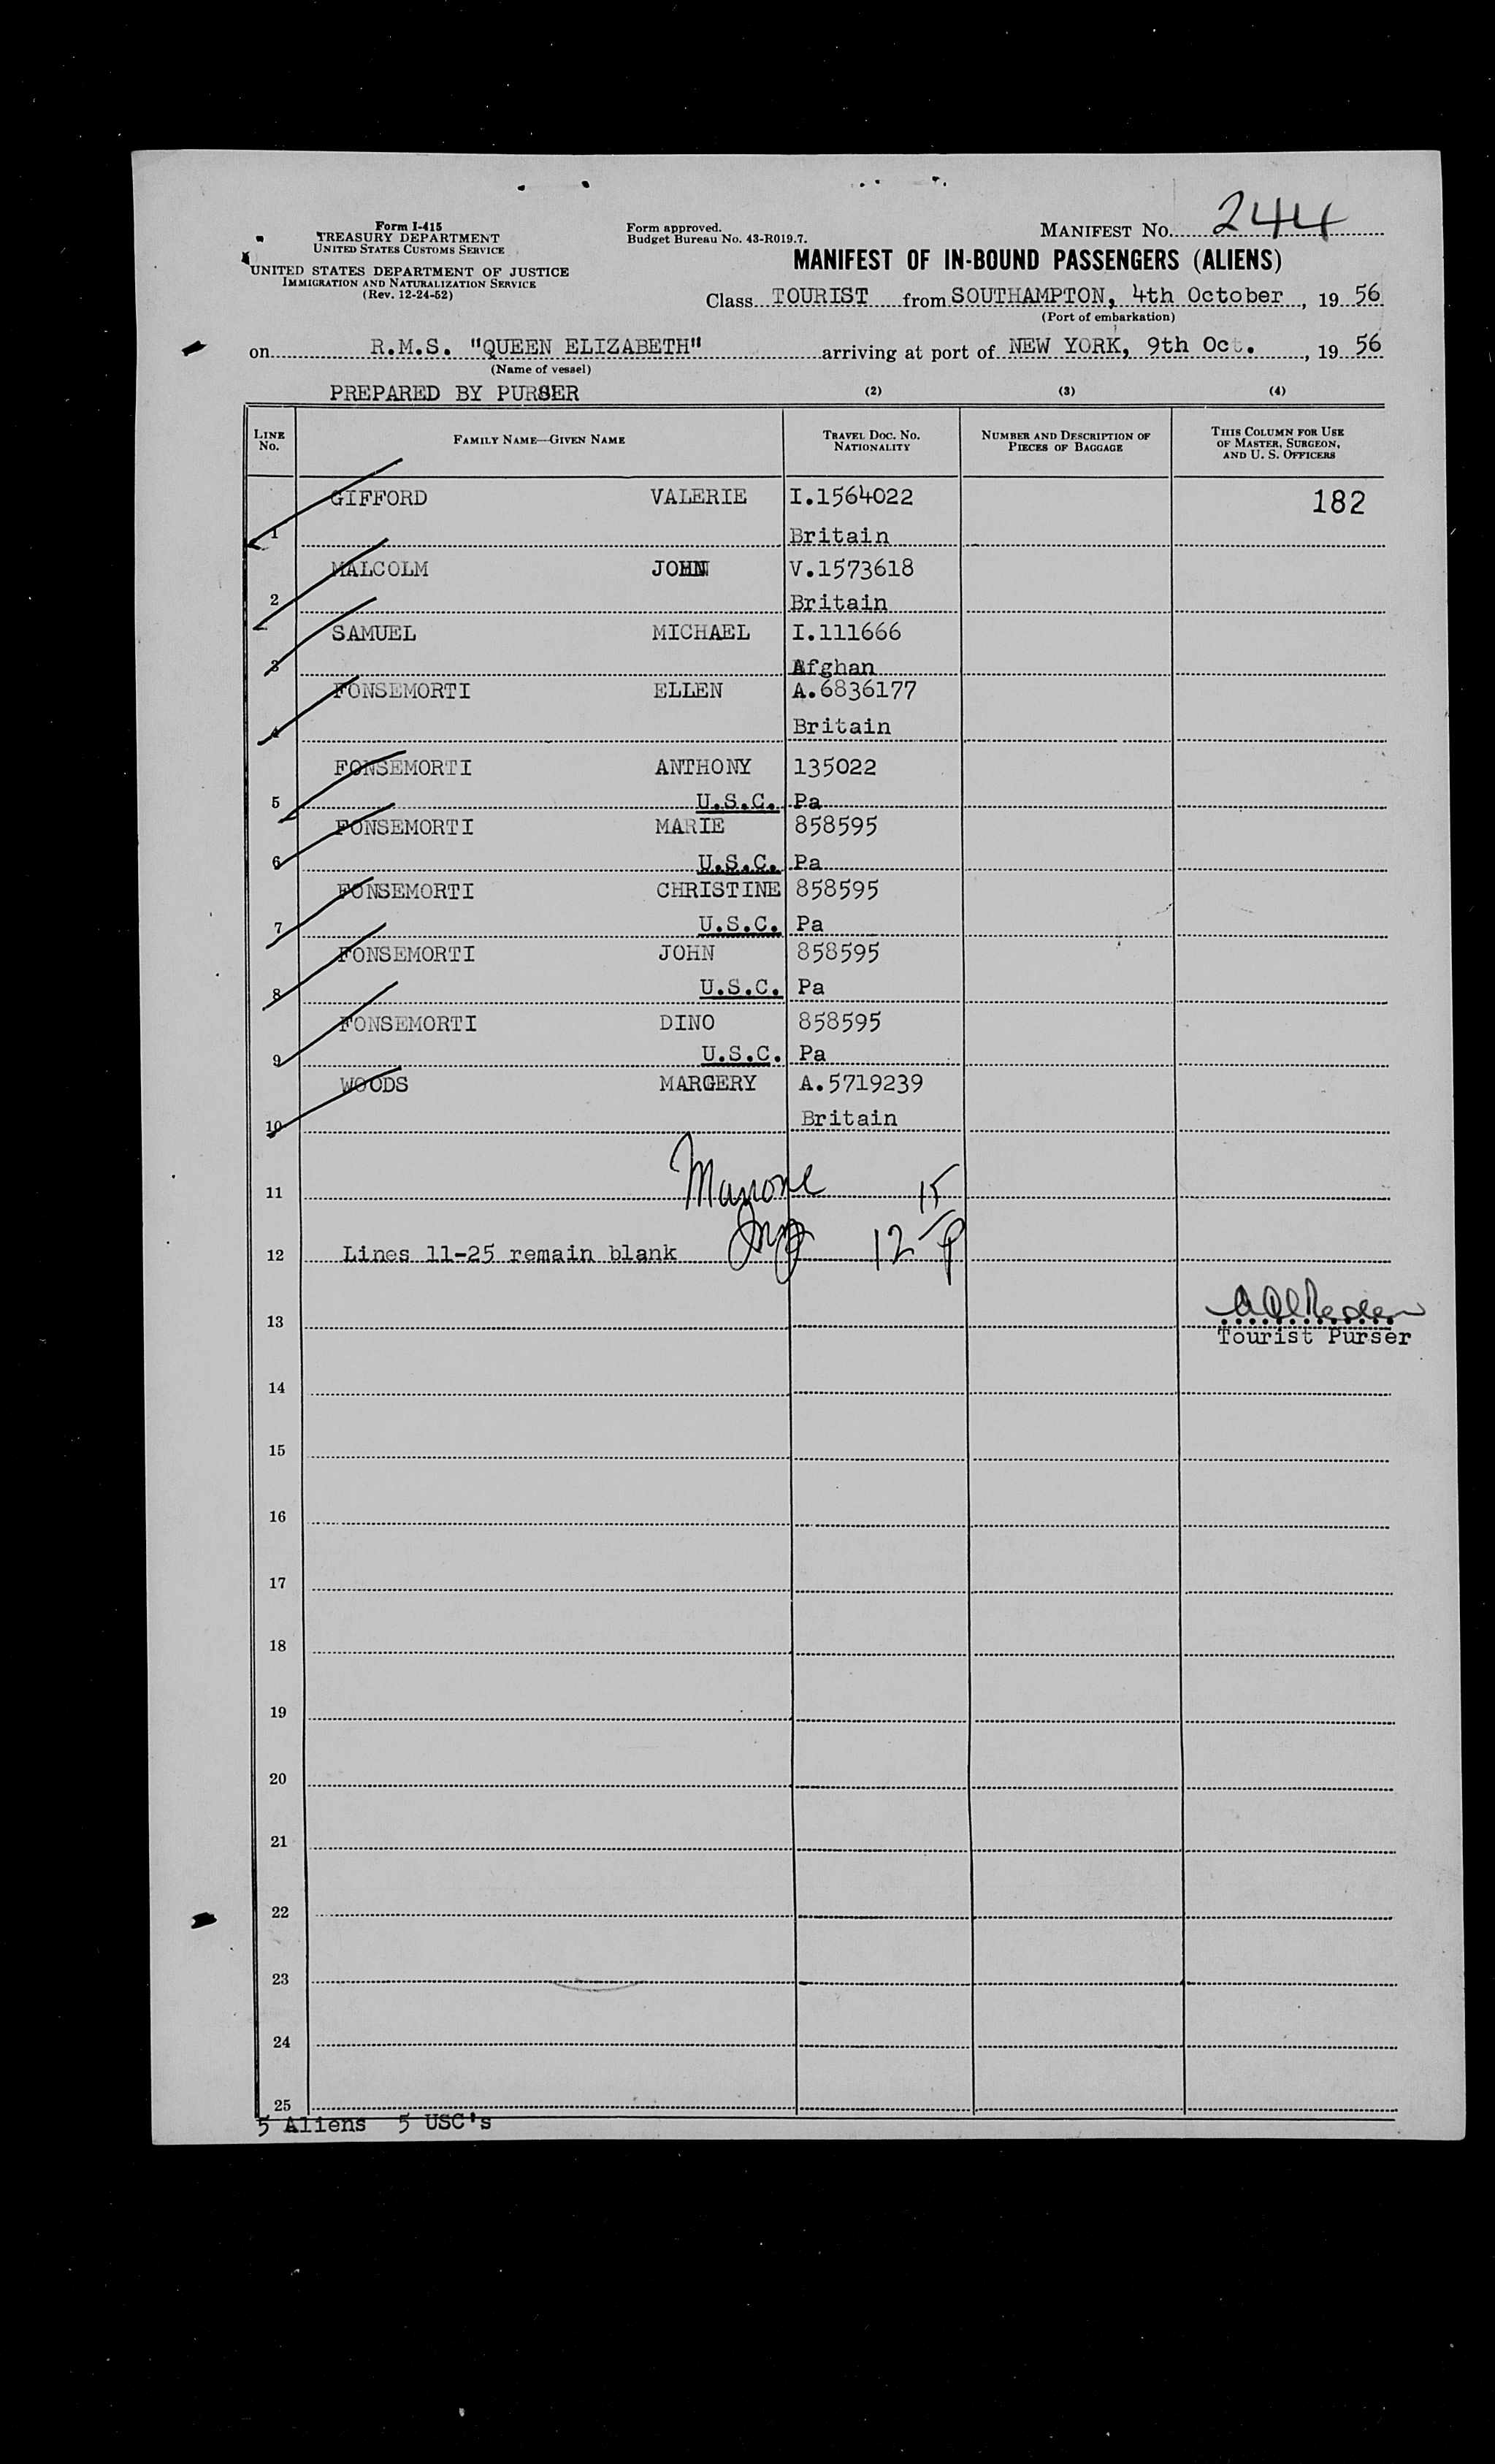 Form I-415
TREASURY DEPARTMENT
UNITED STATES CUSTOMS SERVICE
UNITED STATES DEPARTMENT OF JUSTICE
IMMIGRATION AND NATURALIZATION SERVICE
(Rev. 12-24-52)
Form approved.
Budget Bureau No. 43-R019.7.
MANIFEST No. 244
MANIFEST OF IN-BOUND PASSENGERS (ALIENS)
Class TOURIST from SOUTHAMPTON, 4th October, 19 56
(Port of embarkation)
on R.M.S. "QUEEN ELIZABETH" arriving at port of NEW YORK, 9th Oct., 19 56
(Name of vessel)
PREPARED BY PURSER (2) (3) (4)
LINE No. FAMILY NAME—GIVEN NAME TRAVEL DOC. NO. NATIONALITY NUMBER AND DESCRIPTION OF PIECES OF BAGGAGE THIS COLUMN FOR USE OF MASTER, SURGEON, AND U. S. OFFICERS
GIFFORD VALERIE I.1564022 182
1 Britain
MALCOLM JOHN V.1573618
2 Britain
SAMUEL MICHAEL I.111666
3 Afghan
FONSEMORTI ELLEN A.6836177
4 Britain
FONSEMORTI ANTHONY 135022
5 U.S.C. Pa
FONSEMORTI MARIE 858595
6 U.S.C. Pa
FONSEMORTI CHRISTINE 858595
7 U.S.C. Pa
FONSEMORTI JOHN 858595
8 U.S.C. Pa
FONSEMORTI DINO 858595
9 U.S.C. Pa
WOODS MARGERY A.5719239
10 Britain
11 15
12 Lines 11-25 remain blank 12
13
Tourist Purser
14
15
16
17
18
19
20
21
22
23
24
25
5 Aliens 5 USC's